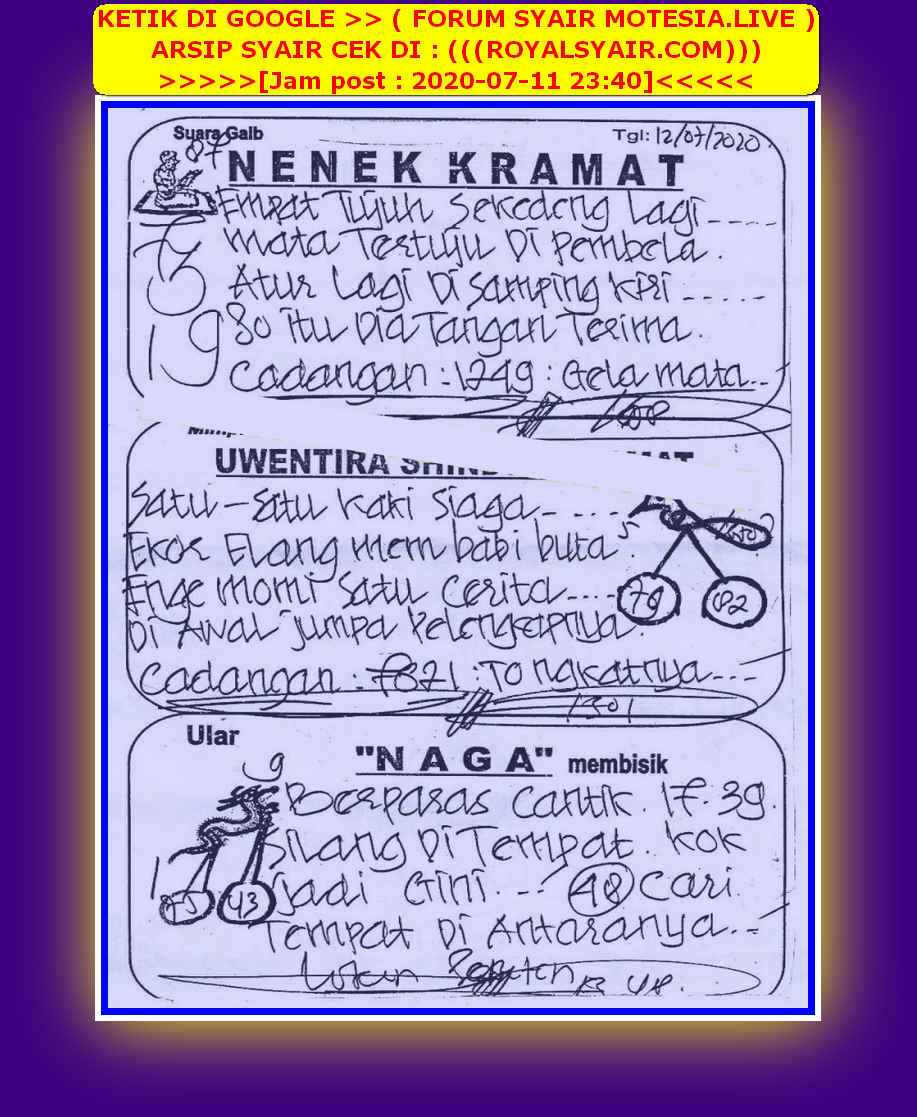 KETIK DI GOOGLE >> ( FORUM SYAIR MOTESIA.LIVE )
ARSIP SYAIR CEK DI : (((ROYALSYAIR.COM)))
>>>>>[Jam post : 2020-07-11 23:40]<<<<<
Suara Gaib
Tgl: 12/07/2020.
07
NENEK KRAMAT
Empat Tujuh Sekedeng Lagi -----
Mata Tertuju Di Pembela.
Atur Lagi Di Samping Kiri -----
80 itu Dia Tangan Terima.
19
Cadangan : 1749 : Gela mata...
UWENTIRA
Satu-Satu Kaki Siaga - - - - -
Ekor Elang mem babi buta
Enge momi Satu Cerita.....
79 02
Di Awal jumpa Pelengeapnya.
Cadangan : 7821 : Tongkatnya...
1301
Ular
"NAGA" membisik
9
Berparas Cantik. 17.39.
Silang Di Tempat. Kok
Jadi Gini. --- 48 Cari.
75 43
Tempat Di Antaranya...